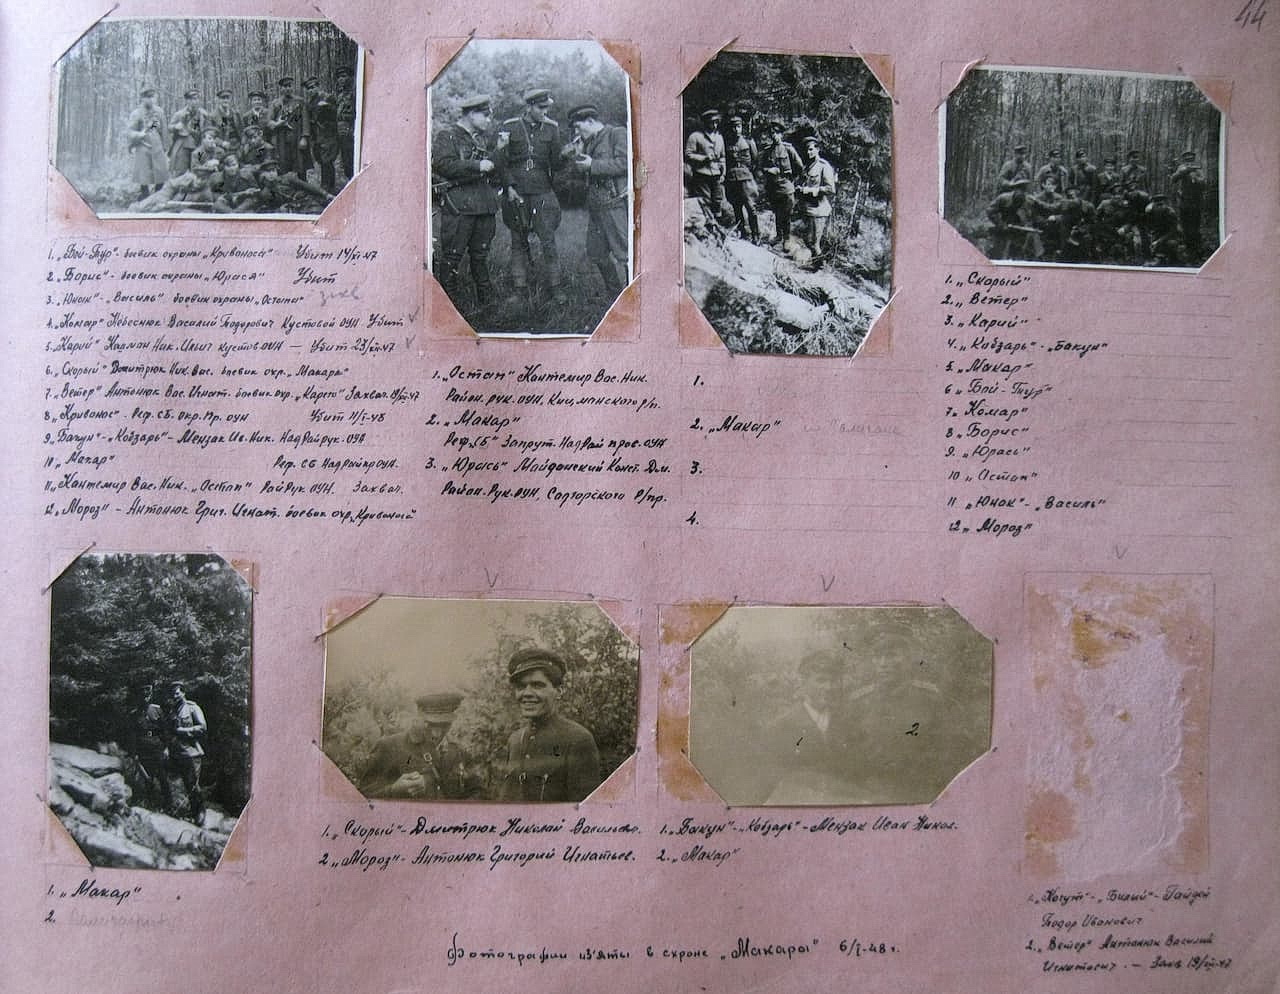 44
1. „Бой-Тур"- боевик охраны „Кривоноса" Убит 14/XI-47
2 „Борис" - боевик охраны „Юрася" Убит
3. „Юнак"-„Василь" боевик охраны „Остапа"
4. „Комар" Небеснюк Василий Тодорович Кустовой ОУН. Убит
5. „Карий" Калман Ник. Ильич кустов ОУН — Убит 23/XII-47
6. „Скорый" Дмитрюк Ник. Вас. боевик охр. „Макара"
7. „Ветер" Антонюк Вас. Игнат. боевик охр. „Карего" Захвач. 19/XII-47
8. „Кривонос" - Реф. СБ. Окр. Пр. ОУН Убит 11/I-48
9. „Бакун"-„Кобзарь"- Мензак Ив. Ник. НадРайрук. ОУН
10 „Макар" Реф. СБ НадРайпр ОУН.
11. „Кантемир Вас. Ник. „Остап" РайРук ОУН. Захвач.
12. „Мороз" - Антонюк Григ. Игнат. боевик охр. „Кривоноса"
1. „Остап" Кантемир Вас. Ник.
Район. рук. ОУН, Кицманского р/п.
2. „Макар"
Реф. „СБ" Запрут. НадРай пров. ОУН
3. „Юрась" Майданский Конст. Дм.
Район. Рук. ОУН, Садгорского Р/пр.
1.
2. „Макар"
3.
4.
1. „Скорый"
2. „Ветер"
3. „Карий"
4. „Кобзарь" - „Бакун"
5. „Макар"
6 „Бой-Тур"
7. „Комар"
8 „Борис"
9. „Юрась"
10 „Остап"
11 „Юнак" - „Василь"
12 „Мороз"
1. „Макар"
2.
1. „Скорый"- Дмитрюк Николай Васильев.
2 „Мороз"- Антонюк Григорий Игнатьев.
1 2.
1. „Бакун"-„Кобзарь"- Мензак Иван Никол.
2. „Макар"
1. „Когут"-„Билый"- Гайдей
Тодор Иванович
2. „Ветер" Антонюк Василий
Игнатович. - Захв 19/XII-47
Фотографии из'яты в схроне „Макара" 6/I-48 г.